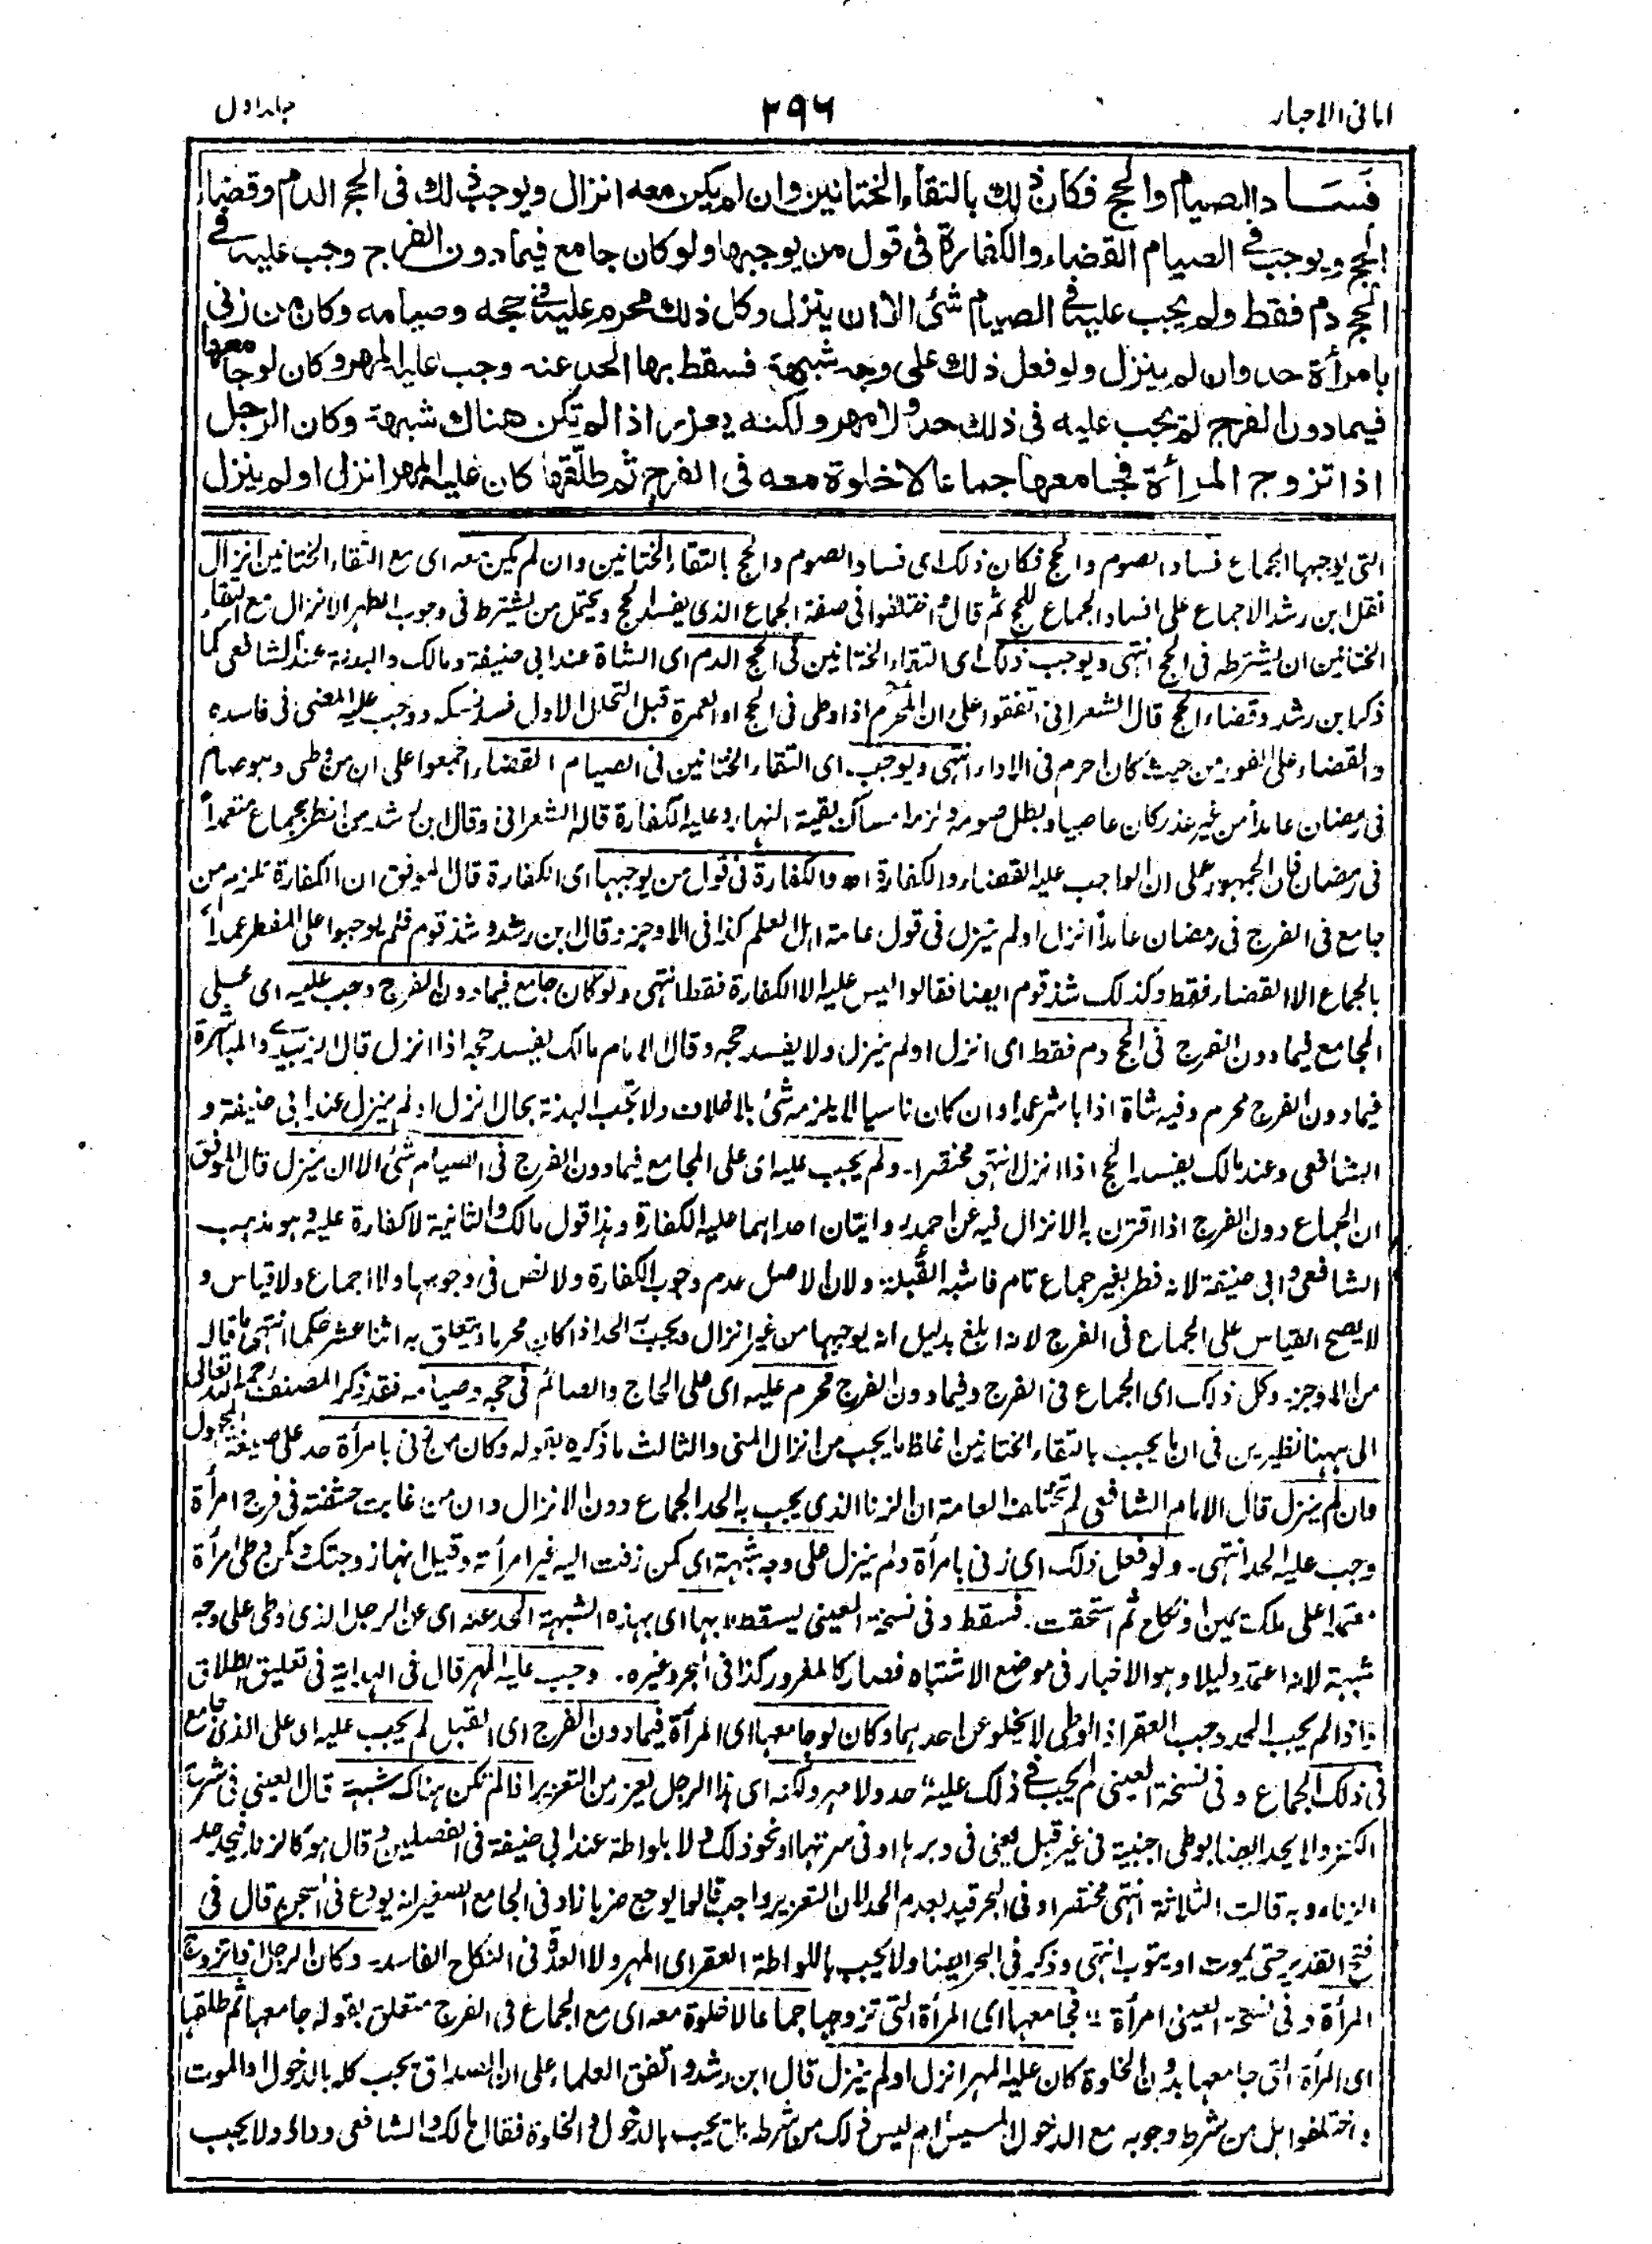 امانی الاحبار
۲۹۶
جلد اول
فَسَاد الصيام والحج فكان ذلك بالتقاء الختانين وان لم يكن معه انزال ويوجب ذلك فى الحج الدم وقضاء
الحج ويوجب فى الصيام القضاء والكفارة فى قول من يوجبها ولو كان جامع فيما دون الفرج وجب عليه فى
الحج دم فقط ولم يجب عليه فى الصيام شئ الا ان ينزل وكل ذلك محرم عليه فى حجه وصيامه وكان من زنى
بامرأة حد وان لم ينزل ولو فعل ذلك على وجه شبهة فسقط بها الحد عنه وجب عليه المهر وكان لو جامعها
فيما دون الفرج لم يجب عليه فى ذلك حد ولا مهر ولكنه يعزر اذا لم تكن هناك شبهة وكان الرجل
اذا تزوج المرأة فجامعها جماعا لا خلوة معه فى الفرج ثم طلّقها كان عليه المهر انزل او لم ينزل
التى يوجبها الجماع فساد الصوم والحج فكان ذلك اى فساد الصوم والحج بالتقاء الختانين وان لم يكن معه اى مع التقاء الختانين انزال
نقل ابن رشد الاجماع على افساد الجماع للحج ثم قال اختلفوا فى صفة الجماع الذى يفسد الحج ويحتمل من يشترط فى وجوب الطهر الانزال مع التقاء
الختانين ان يشترطه فى الحج انتهى ويوجب ذلك اى التقاء الختانين فى الحج الدم اى الشاة عند ابى حنيفة ومالك والبدنة عند الشافعى كما
ذكر ابن رشد وقضاء الحج قال الشعرانى اتفقوا على ان المحرم اذا وطى فى الحج او العمرة قبل التحلل الاول فسد نسكه ووجب عليه المضى فى فاسده
والقضاء على الفور من حيث كان احرم فى الاداء انتهى ويوجب اى التقاء الختانين فى الصيام القضاء اجمعوا على ان من وطى وهو صائم
فى رمضان عامداً من غير عذر كان عاصيا وبطل صومه ولزمه امساك بقية النهار وعليه الكفارة قاله الشعرانى وقال ابن رشد من افطر بجماع متعمداً
فى رمضان فان الجمهور على ان الواجب عليه القضاء والكفارة اھ والكفارة فى قول من يوجبها اى الكفارة قال الموفق ان الكفارة تلزم من
جامع فى الفرج فى رمضان عامداً انزل او لم ينزل فى قول عامة اهل العلم كذا فى الاوجز وقال ابن رشد وشذ قوم فلم يوجبوا على المفطر عمداً
بالجماع الا القضاء فقط وكذلك شذ قوم ايضا فقالوا ليس عليه الا الكفارة فقط انتهى ولو كان جامع فيما دون الفرج وجب عليه اى على
المجامع فيما دون الفرج فى الحج دم فقط اى انزل او لم ينزل ولا يفسد حجه وقال الامام مالك يفسد حجه اذا انزل قال الزبيدى والمباشرة
فيما دون الفرج محرم وفيه شاة اذا باشر عمدا وان كان ناسيا لا يلزمه شئ بلا خلاف ولا تجب البدنة بحال انزل او لم ينزل عند ابى حنيفة و
الشافعى وعند مالك يفسد الحج اذا انزل انتهى مختصرا۔ ولم يجب عليه اى على المجامع فيما دون الفرج فى الصيام شئ الا ان ينزل قال الموفق
ان الجماع دون الفرج اذا اقترن به الانزال فيه عن احمد روايتان احداهما عليه الكفارة وهذا قول مالك والثانية لا كفارة عليه وهو مذهب
الشافعى وابى حنيفة لانه فطر بغير جماع تام فاشبه القُبلة ولان الاصل عدم وجوب الكفارة ولا نص فى وجوبها ولا اجماع ولا قياس و
لا يصح القياس على الجماع فى الفرج لانه ابلغ بدليل انه يوجبها من غير انزال ويجب به الحد اذا كان محرما ويتعلق به اثنا عشر حكما انتهى ما قال
من الاوجز وكل ذلك اى الجماع فى الفرج وفيما دون الفرج محرم عليه اى على الحاج والصائم فى حجه وصيامه فقد ذكر المصنف رحمه الله تعالى
الى ههنا نظيرين فى ان ما يجب بالتقاء الختانين اغلظ مما يجب من انزال المنى والثالث ما ذكره بقوله وكان من زنى بامرأة حد على صيغة المجهول
وان لم ينزل قال الامام الشافعى لم تختلف العامة ان الزنا الذى يجب به الحد الجماع دون الانزال وان من غابت حشفته فى فرج امرأة
وجب عليه الحد انتهى۔ ولو فعل ذلك اى زنى بامرأة ولم ينزل على وجه شبهة اى كمن زفت اليه غير امرأته وقيل انها زوجتك كمن وطى امرأة
معتمدا على ملك يمين او نكاح ثم استحقت۔ فسقط وفى نسخة العينى يسقط " بها اى بهذه الشبهة الحد عنه اى عن الرجل الذى وطى على وجه
شبهة لانه اعتمد دليلا وهو الاخبار فى موضع الاشتباه فصار كالمغرور كذا فى البحر وغيره۔ وجب عليه المهر قال فى الهداية فى تعليق الطلاق
واذا لم يجب الحد وجب العقر اذ الوطى لا يخلو عن احدهما وكان لو جامعها اى المرأة فيما دون الفرج اى القبل لم يجب عليه اى على الذى جامع
فى ذلك الجماع وفى نسخة العينى لم يجب فى ذلك عليه " حد ولا مهر ولكنه اى هذا الرجل يعزر من التعزير اذا لم تكن هناك شبهة قال العينى فى شرح
الكنز ولا يحد ايضا بوطى اجنبية فى غير قبل يعنى فى دبرها او فى سرتها او نحو ذلك ولا بلواطة عند ابى حنيفة فى الفصلين وقال هو كالزنا فيحد حد
الزناء وبه قالت الثلاثة انتهى مختصرا وفى البحر قيد بعدم الحد لان التعزير واجب قالوا يوجع ضربا زاد فى الجامع الصغير انه يودع فى السجن قال فى
فتح القدير حتى يموت او يتوب انتهى وذكره فى البحر ايضا ولا يجب باللواطة العقر اى المهر ولا العدة فى النكاح الفاسد۔ وكان الرجل اذا تزوج
المرأة وفى نسخة العينى امرأة " فجامعها اى المرأة التى تزوجها جماعا لا خلوة معه اى مع الجماع فى الفرج متعلق بقوله جامعها ثم طلقها
اى المرأة التى جامعها بدون الخلوة كان عليه المهر انزل او لم ينزل قال ابن رشد واتفق العلماء على ان الصداق يجب كله بالدخول او الموت
واختلفوا هل من شرط وجوبه مع الدخول المسيس ام ليس ذلك من شرطه بل يجب بالدخول والخلوة فقال مالك والشافعى وداؤد لا يجب